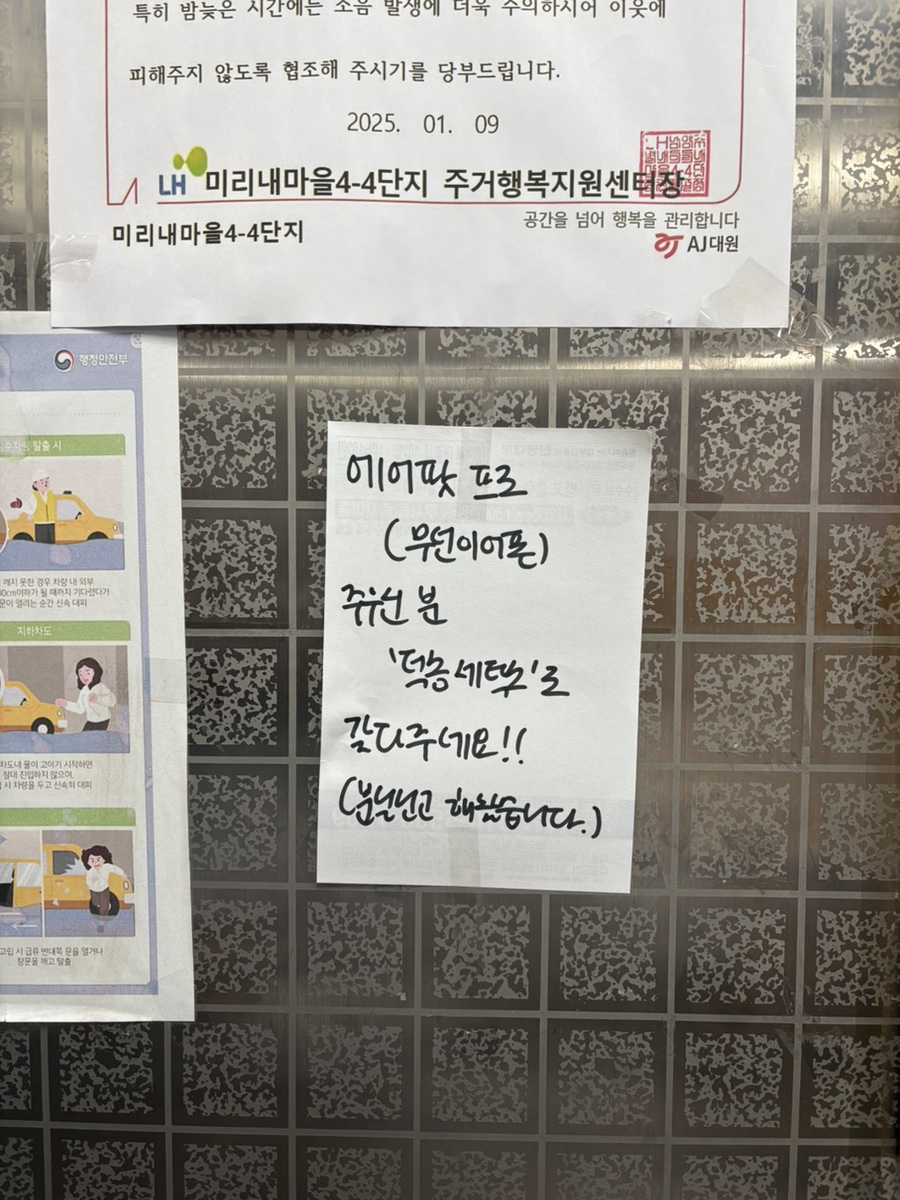 특히 밤늦은 시간에는 소음 발생에 더욱 주의하시어 이웃에
피해주지 않도록 협조해 주시기를 당부드립니다.
2025. 01. 09
LH 미리내마을4-4단지 주거행복지원센터장
미리내마을4-4단지
공간을 넘어 행복을 관리합니다
AJ대원
행정안전부
탈출 시
깨지 못한 경우 차량 내·외부
30cm이하가 될 때까지 기다렸다가
문이 열리는 순간 신속 대피
지하차도
차도내 물이 고이기 시작하면
절대 진입하지 않으며,
시 차량을 두고 신속히 대피
고립 시 급류 반대쪽 문을 열거나
창문을 깨고 탈출
에어팟 프로
(무선이어폰)
주우신 분
'덕송세탁'로
갖다주세요!!
(분실신고 해놨습니다.)